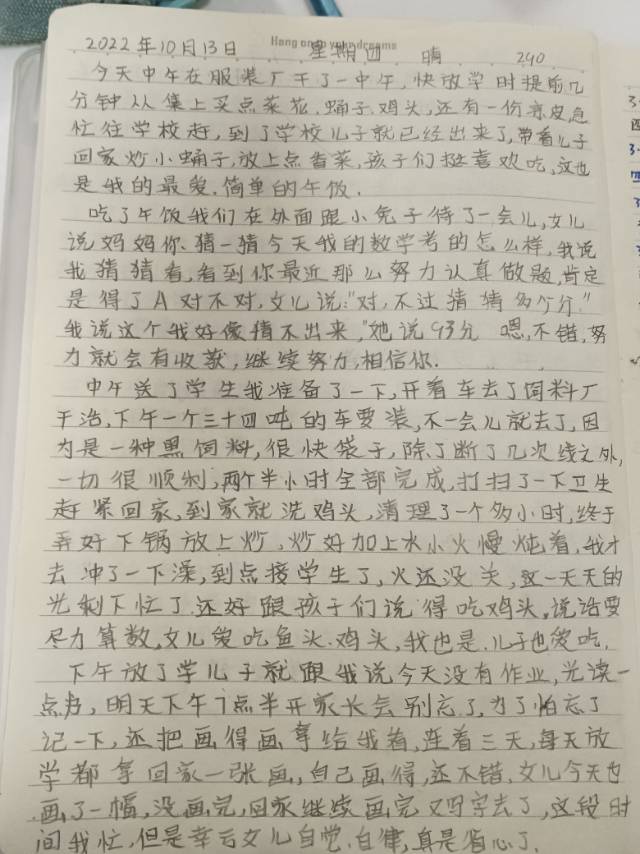 2022年10月13日 Hang on to your dreams 星期四 晴 240
今天中午在服装厂干了一中午,快放学时提前几
分钟从集上买点菜花、蛹子、鸡头,还有一份凉皮急
忙往学校赶,到了学校儿子就已经出来了,带着儿子
回家炒小蛹子,放上点香菜,孩子们挺喜欢吃,这也
是我的最爱,简单的午饭。
吃了午饭我们在外面跟小兔子待了一会儿,女儿
说妈妈你猜一猜今天我的数学考的怎么样,我说
我猜猜看,看到你最近那么努力认真做题,肯定
是得了A对不对,女儿说:"对,不过猜猜多少分"
我说这个我好像猜不出来,"她说93分 嗯,不错,努
力就会有收获,继续努力,相信你.
中午送了学生我准备了一下,开着车去了饲料厂
干活,下午一个三十四吨的车要装,不一会儿就去了,因
为是一种黑饲料,很快袋子,除了断了几次线之外,
一切很顺利,两个半小时全部完成,打扫了一下卫生
赶紧回家,到家就洗鸡头,清理了一个多小时,终于
弄好下锅放上炒,炒好加上水小火慢炖着,我才
去冲了一下澡,到点接学生了,火还没关,这一天天的
光剩下忙了.还好跟孩子们说得吃鸡头,说话要
尽力算数,女儿爱吃鱼头.鸡头,我也是.儿子也爱吃.
下午放了学儿子就跟我说今天没有作业,光读一
点书,明天下午7点半开家长会别忘了,为了怕忘了
记一下,还把画得画拿给我看,连着三天,每天放
学都拿回家一张画,自己画得,还不错.女儿今天也
画了一幅,没画完,回家继续画完又写字去了,这段时
间我忙,但是幸亏女儿自觉.自律,真是省心了.